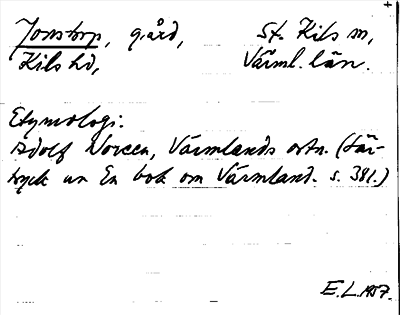 Jonstorp, gård, St. Kils sn,
Kils hd, Värml. län.
Etymologi:
Adolf Noreen, Värmlands ortn. (Sär-
tryck ur En bok om Värmland. s. 381.)
E.L. 1957.